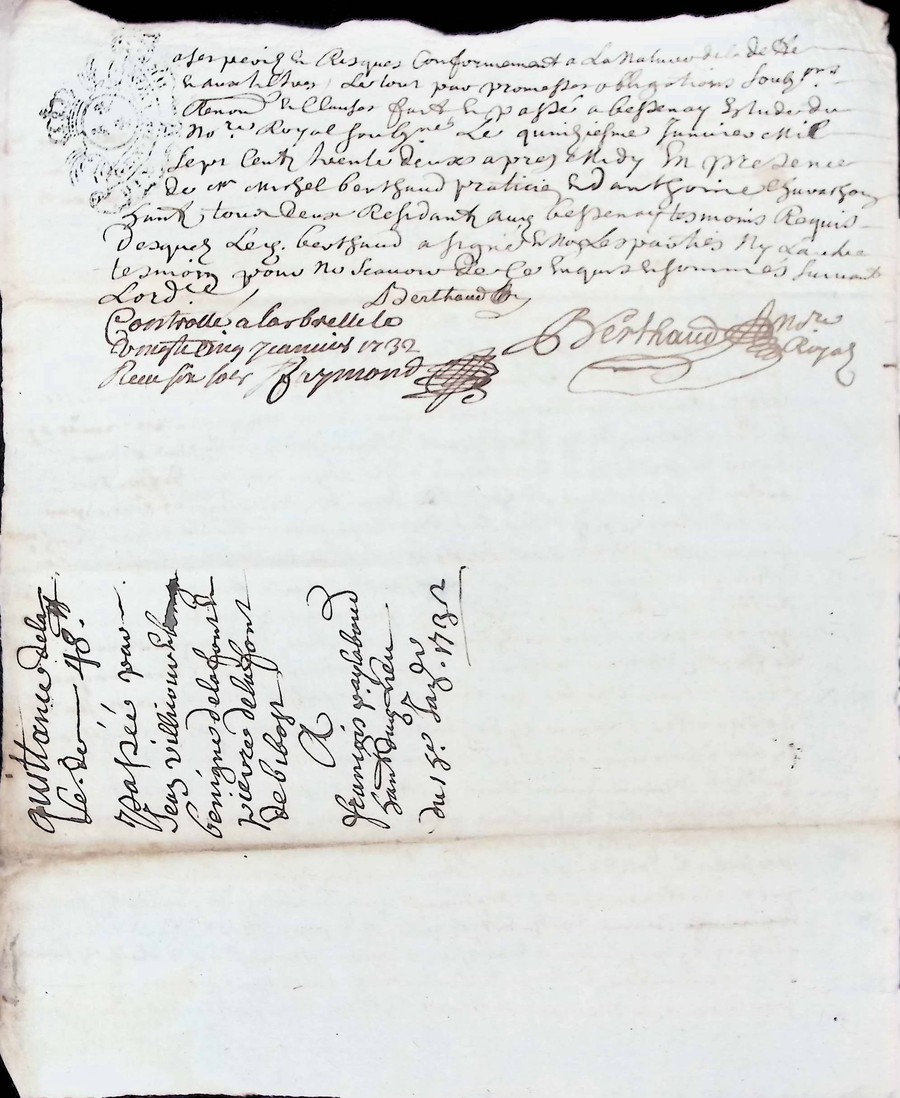 a ses perilz et Risques Conformement a La Nature de la debte
et aux tiltres, Le tout par promesses obligations soubz^ons
Renon^on et Clauses fait et passé a bessenay Estude du
No^re Royal soubzigné Le quinziesme Janvier Mil
Sept Centz trente deux apres Midy En presence
de M^r Michel berthaud praticien Et d'anthoine
habitantz tous deux Residantz aud bessenay tesmoins Requis
Desquelz Led. berthaud a signé et Non Les parties Ny L'autre
tesmoin pour ne scavoir De Ce Enquis et sommés suivant
Lord^ce Berthaud
Controllé a larbrelle le
vingt cinq Janvier 1732
Receu six sols Raymond
Berthaud No^re
Royal
quittance de la
de 48^tt
Passée par
Jean
benigne delafont et
pierre delafont
de bibost
A
françois
du 15^e Janv^r 1732